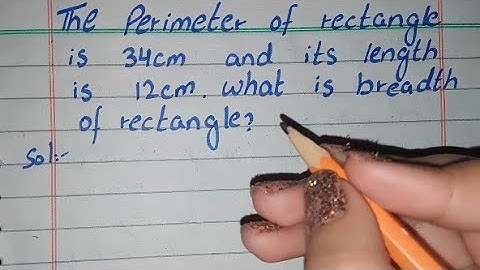 The Perimeter of rectangle
is 34cm and its length
is 12cm. what is breadth
of rectangle?
Sol:-